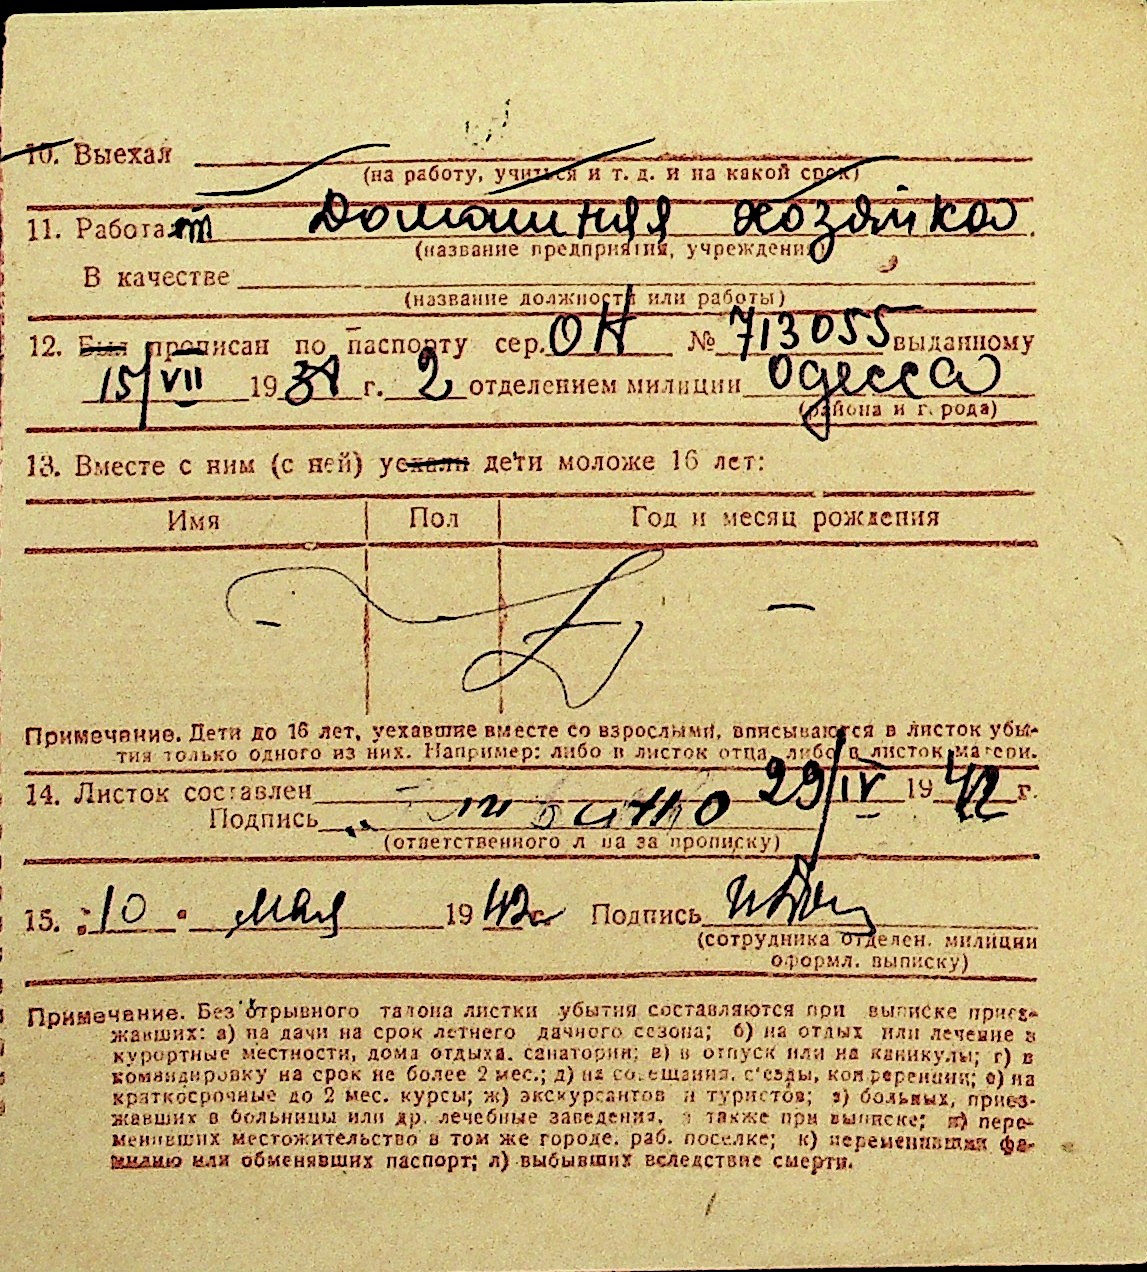 10. Выехал
(на работу, учиться и т. д. и на какой срок)
11. Работает Домашняя хозяйка
(название предприятия, учреждения)
В качестве
(название должности или работы)
12. Был прописан по паспорту сер. ОН № 713055 выданному
15/VII 19 г. 2 отделением милиции Одесса
(района и г. рода)
13. Вместе с ним (с ней) уехали дети моложе 16 лет:
Имя Пол Год и месяц рождения
Примечание. Дети до 16 лет, уехавшие вместе со взрослыми, вписываются в листок убы-
тия только одного из них. Например: либо в листок отца, либо в листок матери.
14. Листок составлен 29/IV 1942 г.
Подпись
(ответственного л ца за прописку)
15. "10" мая 1942 г. Подпись
(сотрудника отделен. милиции
оформл. выписку)
Примечание. Без отрывного талона листки убытия составляются при выписке приез-
жавших: а) на дачи на срок летнего дачного сезона; б) на отдых или лечение в
курортные местности, дома отдыха, санатории; в) в отпуск или на каникулы; г) в
командировку на срок не более 2 мес.; д) на совещания, с'езды, конференции; е) на
краткосрочные до 2 мес. курсы; ж) экскурсантов и туристов; з) больных, приез-
жавших в больницы или др. лечебные заведения, а также при выписке; и) пере-
менивших местожительство в том же городе, раб. поселке; к) переменивших фа-
милию или обменявших паспорт; л) выбывших вследствие смерти.